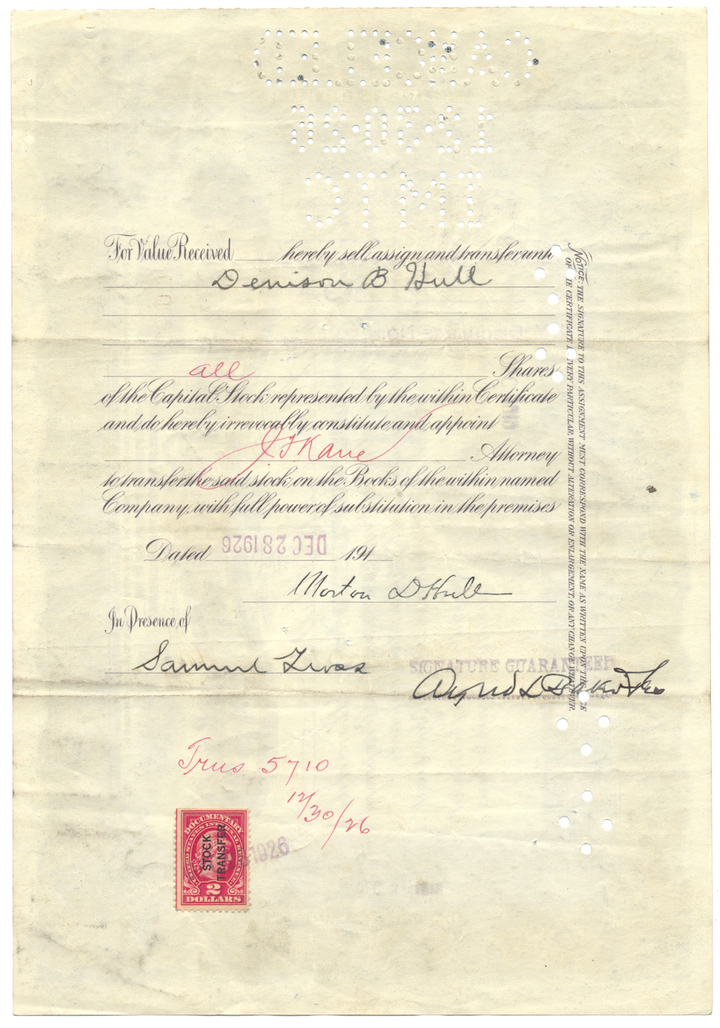 CANCELLED
12·30·26
IMTC
For Value Received hereby sell, assign and transfer unto
Denison B Hull
all Shares
of the Capital Stock represented by the within Certificate
and do hereby irrevocably constitute and appoint
J F Kane Attorney
to transfer the said stock on the Books of the within named
Company, with full power of substitution in the premises
Dated DEC 28 1926 191
Morton D Hull
In Presence of
Samuel
SIGNATURE GUARANTEED
Trus 5710
12/30/26
DOCUMENTARY
STOCK
TRANSFER
1926
2
DOLLARS
NOTICE: THE SIGNATURE TO THIS ASSIGNMENT MUST CORRESPOND WITH THE NAME AS WRITTEN UPON THE
OF CERTIFICATE EVERY PARTICULAR, WITHOUT ALTERATION OR ENLARGEMENT, OR ANY CHANGE WHATEVER.